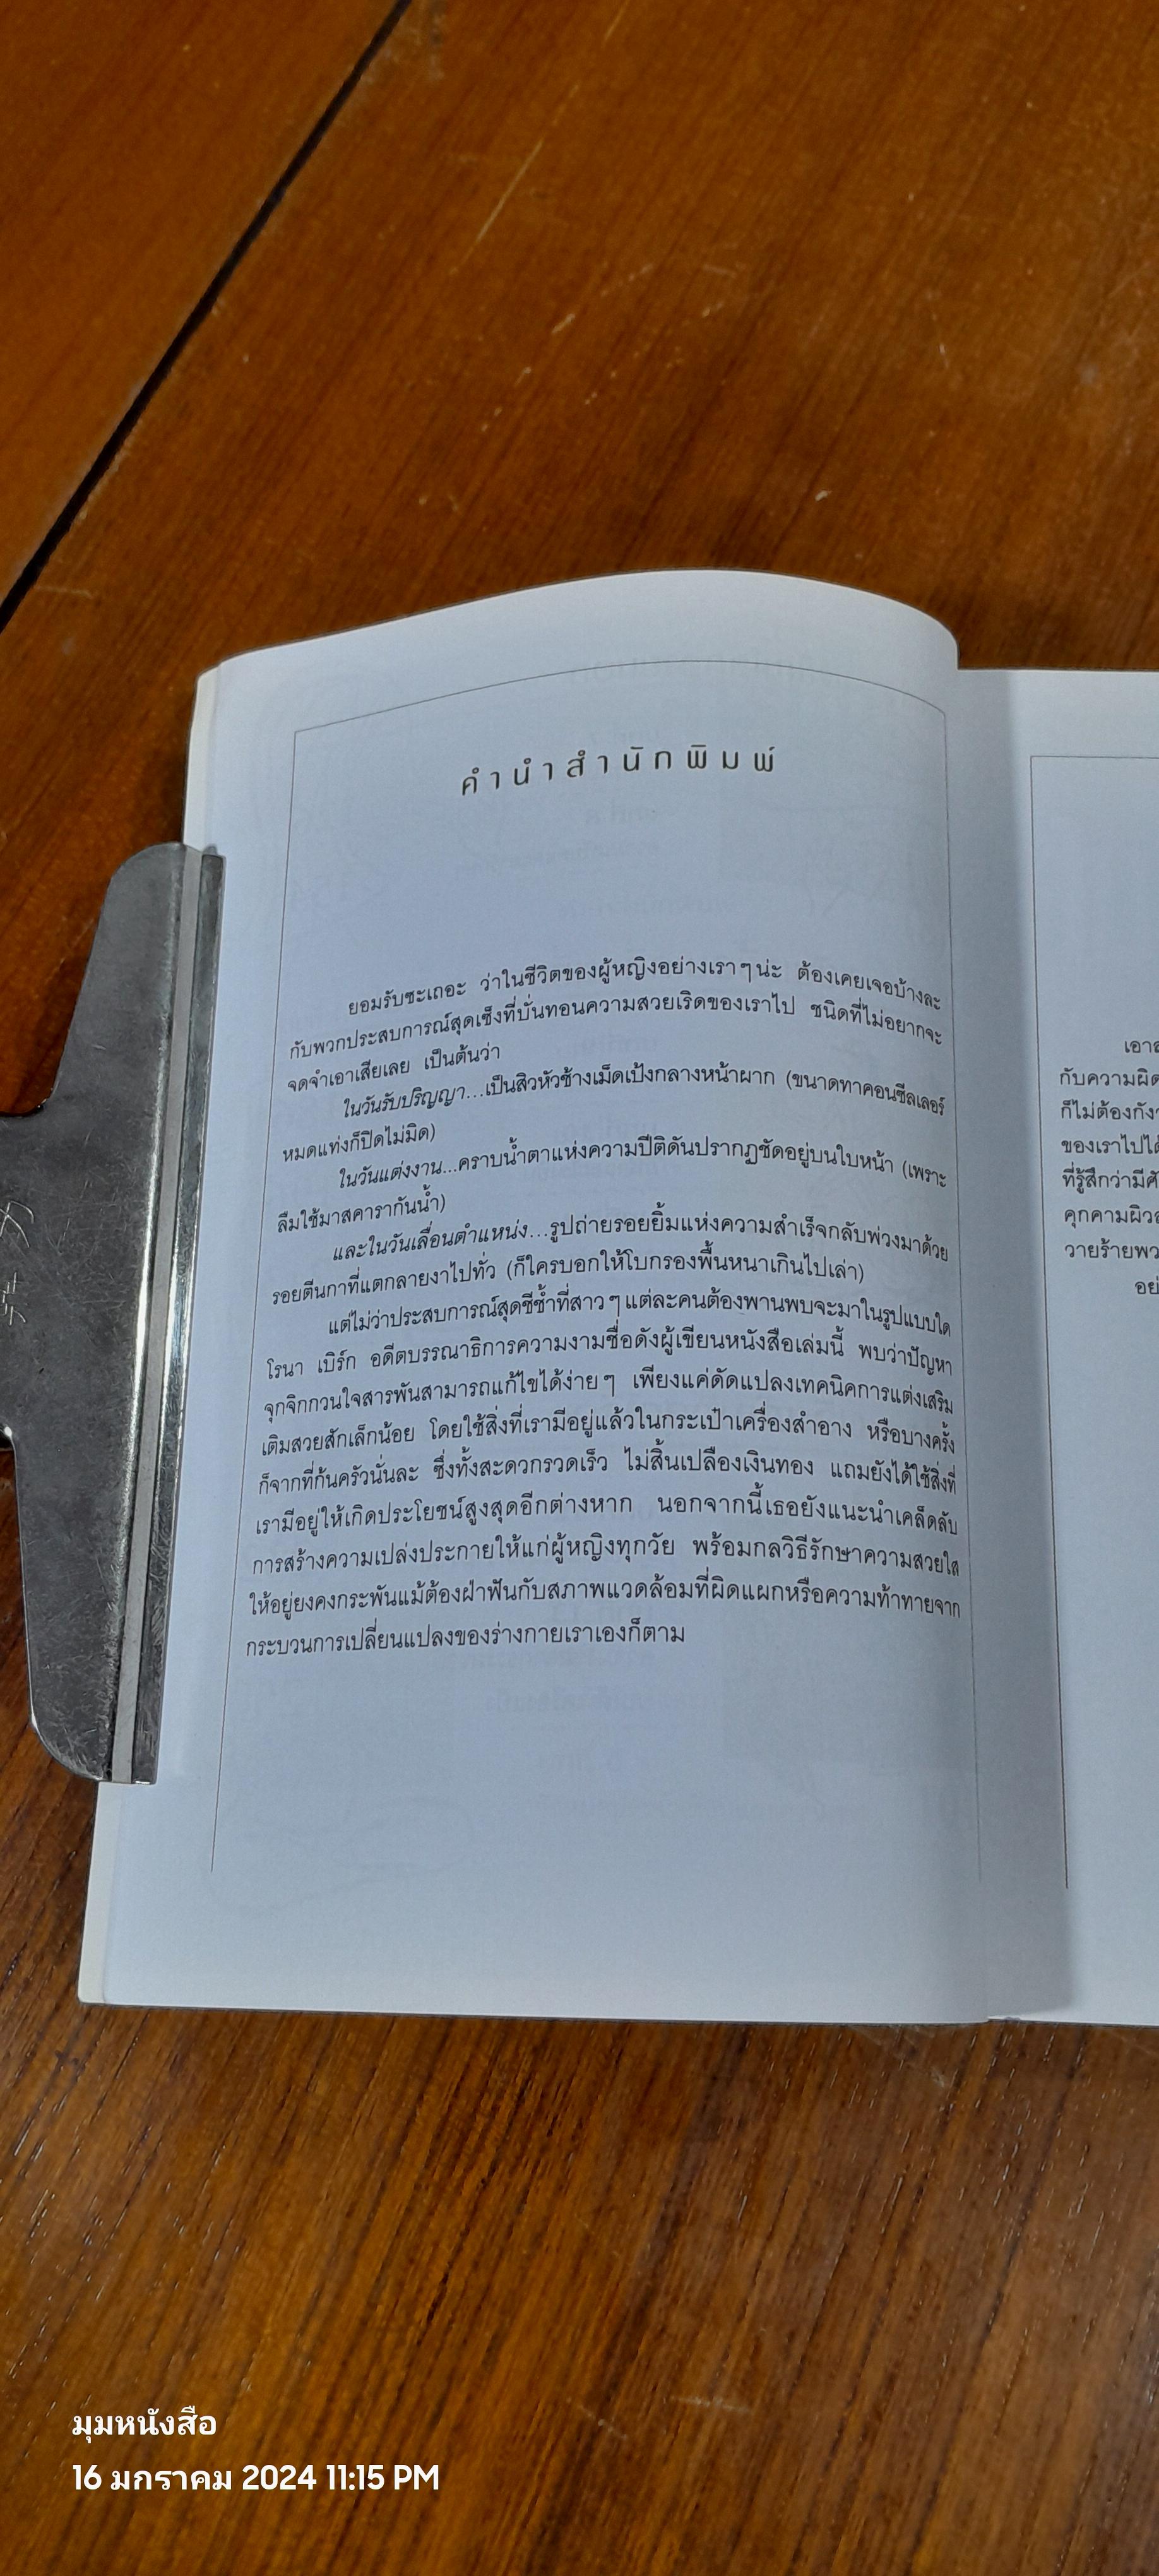 คำนำสำนักพิมพ์
ยอมรับซะเถอะ ว่าในชีวิตของผู้หญิงอย่างเราๆ น่ะ ต้องเคยเจอบ้างละ
กับพวกประสบการณ์สุดเซ็งที่บั่นทอนความสวยเริดของเราไป ชนิดที่ไม่อยากจะ
จดจำเอาเสียเลย เป็นต้นว่า
ในวันรับปริญญา...เป็นสิวหัวช้างเม็ดเป้งกลางหน้าผาก (ขนาดทาคอนซีลเลอร์
หมดแท่งก็ปิดไม่มิด)
ในวันแต่งงาน...คราบน้ำตาแห่งความปีติดันปรากฏชัดอยู่บนใบหน้า (เพราะ
ลืมใช้มาสคารากันน้ำ)
และในวันเลื่อนตำแหน่ง...รูปถ่ายรอยยิ้มแห่งความสำเร็จกลับพ่วงมาด้วย
รอยตีนกาที่แตกลายงาไปทั่ว (ก็ใครบอกให้โบกรองพื้นหนาเกินไปเล่า)
แต่ไม่ว่าประสบการณ์สุดชีช้ำที่สาวๆ แต่ละคนต้องพานพบจะมาในรูปแบบใด
โรนา เบิร์ก อดีตบรรณาธิการความงามชื่อดังผู้เขียนหนังสือเล่มนี้ พบว่าปัญหา
จุกจิกกวนใจสารพันสามารถแก้ไขได้ง่ายๆ เพียงแค่ดัดแปลงเทคนิคการแต่งเสริม
เติมสวยสักเล็กน้อย โดยใช้สิ่งที่เรามีอยู่แล้วในกระเป๋าเครื่องสำอาง หรือบางครั้ง
ก็จากที่ก้นครัวนั่นละ ซึ่งทั้งสะดวกรวดเร็ว ไม่สิ้นเปลืองเงินทอง แถมยังได้ใช้สิ่งที่
เรามีอยู่ให้เกิดประโยชน์สูงสุดอีกต่างหาก นอกจากนี้เธอยังแนะนำเคล็ดลับ
การสร้างความเปล่งประกายให้แก่ผู้หญิงทุกวัย พร้อมกลวิธีรักษาความสวยใส
ให้อยู่ยงคงกระพันแม้ต้องฝ่าฟันกับสภาพแวดล้อมที่ผิดแผกหรือความท้าทายจาก
กระบวนการเปลี่ยนแปลงของร่างกายเราเองก็ตาม
กับความผิด
ของเราไปได้
ที่รู้สึกว่ามี
มุมหนังสือ
16 มกราคม 2024 11:15 PM